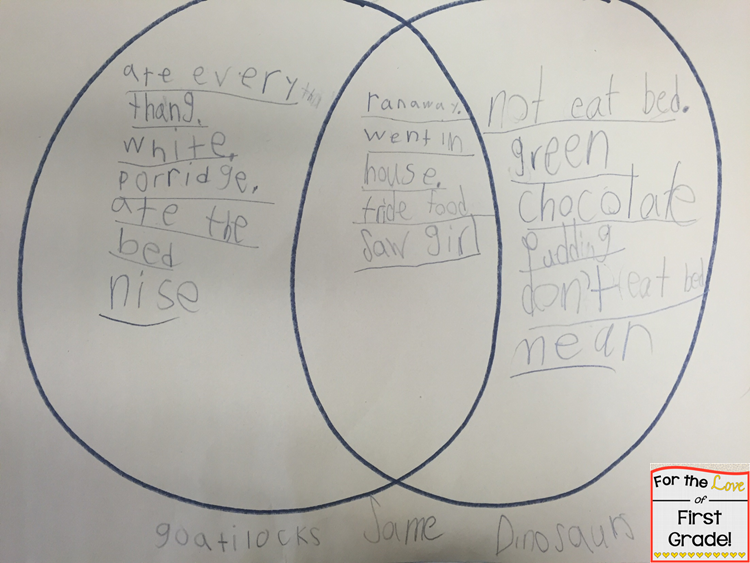 ate every
thang.
white.
porridge.
ate the
bed
nise
ranaway.
went in
house.
tride food
saw girl
not eat bed.
green
chocolate
pudding
don't eat bed
mean
goatilocks
Same
Dinosaurs
For the Love
of
First
Grade!